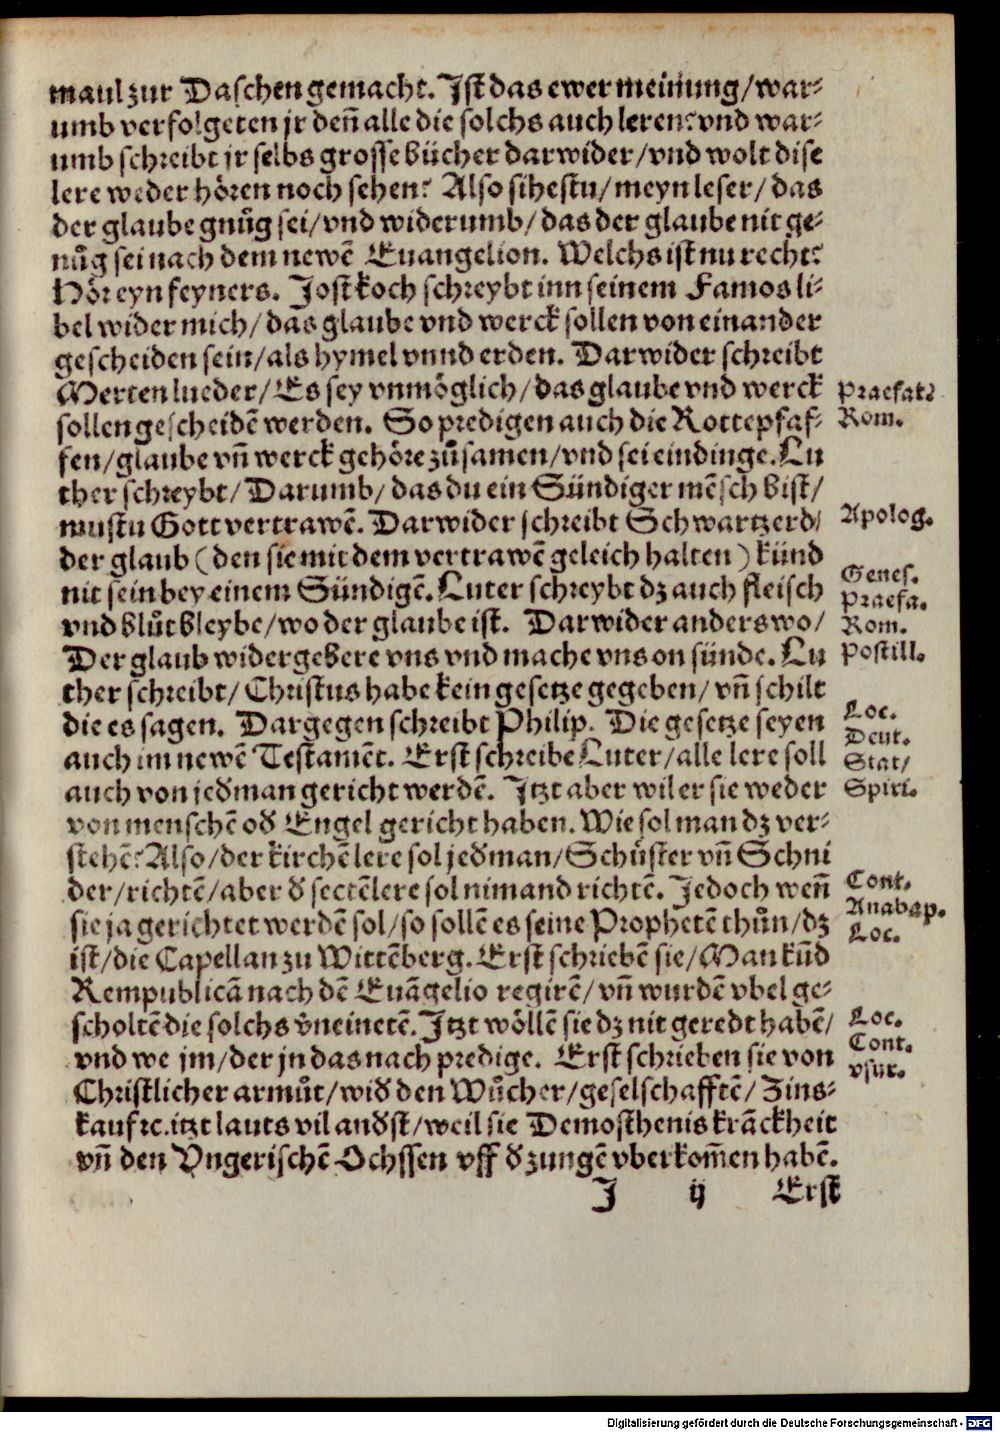 maul zur Daschen gemacht. Ist das ewer meinung/war-
umb verfolgeten jr deñ alle die solchs auch leren? vnd war-
umb schreibt jr selbs grosse bücher darwider/vnd wolt dise
lere weder hören noch sehen? Also sihestu/meyn leser/das
der glaube gnůg sei/vnd widerumb/das der glaube nit ge-
nůg sei nach dem newē Euangelion. Welchs ist nu recht?
Hör eyn feyners. Jost koch schreybt inn seinem Famos li-
bel wider mich/das glaube vnd werck sollen von einander
gescheiden sein/als hymel vnnd erden. Darwider schreibt
Merten lueder/Es sey vnmöglich/das glaube vnd werck
sollen gescheidē werden. So predigen auch die Rottepfaf-
fen/glaube vñ werck gehöre zůsamen/vnd sei ein dinge. Lu
ther schreybt/Darumb/das du ein Sündiger mēsch bist/
mustu Gott vertrawē. Darwider schreibt Schwartzerd/
der glaub (den sie mit dem vertrawē geleich halten) künd
nit sein bey einem Sündigē. Luter schreybt dz auch fleisch
vnd blůt bleybe/wo der glaube ist. Darwider anderswo/
Der glaub widergebere vns vnd mache vns on sünde. Lu
ther schreibt/Christus habe kein gesetze gegeben/vñ schilt
die es sagen. Dargegen schreibt Philip. Die gesetze seyen
auch im newē Testamēt. Erst schreibe Luter/alle lere soll
auch von jedman gericht werdē. Itzt aber wil er sie weder
von menschē od Engel gericht haben. Wie sol man dz ver-
stehē? Also/der kirchē lere sol jedman/Schůster vñ Schni
der/richtē/aber d sectē lere sol nimand richtē. Jedoch weñ
sie ja gerichtet werdē sol/so sollē es seine Prophetē thůn/dz
ist/die Capellan zu Wittēberg. Erst schriebē sie/Man kūd
Rempublicā nach dē Euāgelio regirē/vñ wurdē vbel ge-
scholtē die solchs v̄neinetē. Itzt wöllē sie dz nit geredt habē/
vnd we jm/der jn das nach predige. Erst schrieben sie von
Christlicher armůt/wid den Wůcher/geselschafftē/Zins-
kauf ꝛc. itzt lauts vil andst/weil sie Demosthenis krāckheit
vñ den Vngerischē Ochssen vff d zungē vberkom̄en habē.
J ij Erst
Praefat.
Rom.
Apolog.
Genes.
Praefa.
Rom.
Postill.
Loc.
Deut.
Stat/
Spiri.
Cont.
Anabap.
Loc.
Loc.
Cont.
vsur.
Digitalisierung gefördert durch die Deutsche Forschungsgemeinschaft - DFG